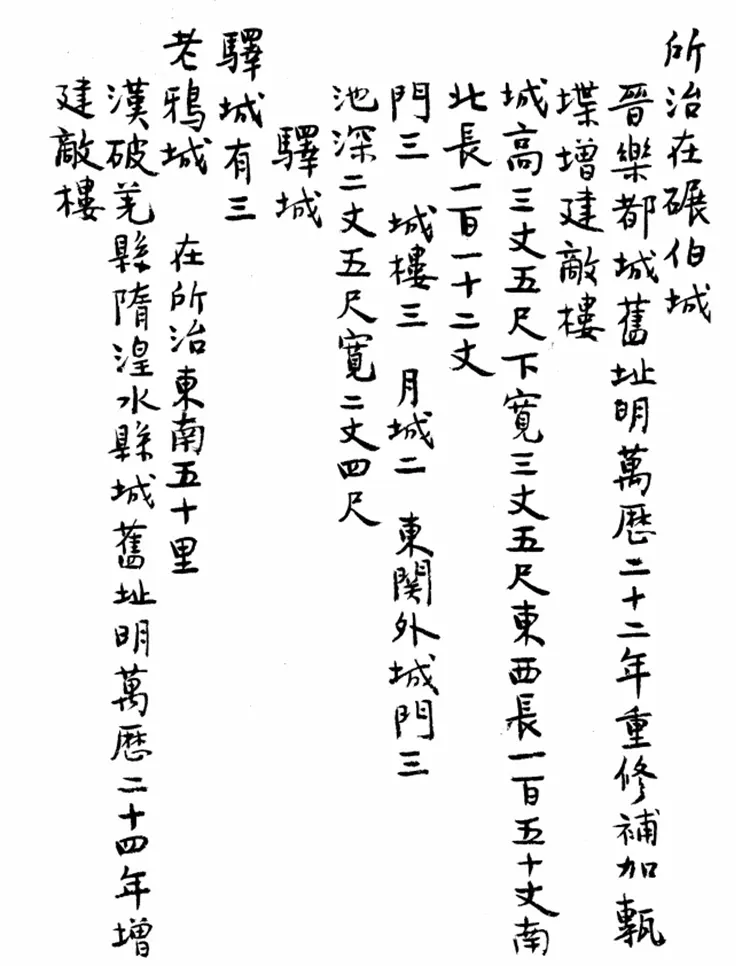 所治在碾伯城
晉樂都城舊址明萬歷二十二年重修補加甎
堞增建敵樓
城高三丈五尺下寬三丈五尺東西長一百五十丈南
北長一百一十二丈
門三 城樓三 月城二 東関外城門三
池深二丈五尺寬二丈四尺
驛城
驛城有三
老鴉城 在所治東南五十里
漢破羌縣隋湟水縣城舊址明萬歷二十四年增
建敵樓